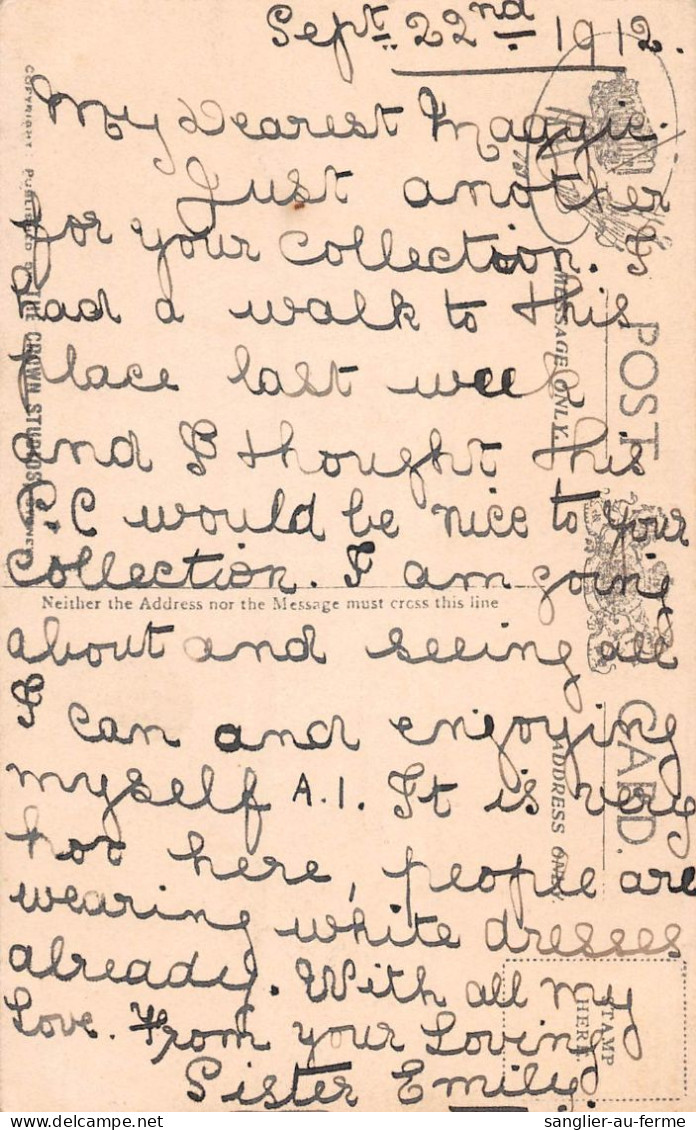 Sept. 22nd 1912.
My Dearest Maggie.
Just another
for your collection.
had a walk to this
place last week
and I thought this
P.C would be nice to your
Collection. I am going
about and seeing all
I can and engoying
myself A.1. It is very
hot here, people are
wearing white dresses
already. With all my
Love. From your Loving
Sister Emily.
Neither the Address nor the Message must cross this line
POST CARD.
MESSAGE ONLY.
ADDRESS ONLY.
STAMP
HERE
COPYRIGHT: PUBLISHED BY THE CROWN STUDIOS SYDNEY
sanglier-au-ferme